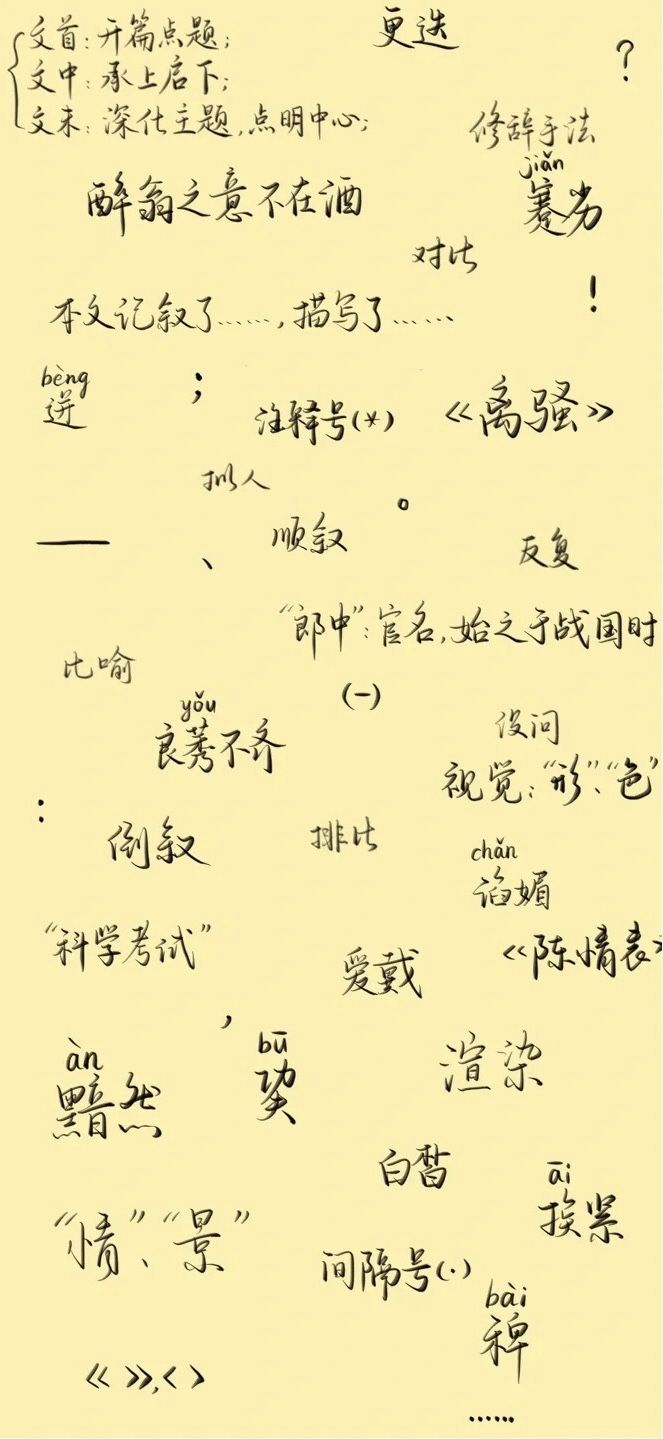 文首：开篇点题；
更迭
？
文中：承上启下；
文末：深化主题，点明中心；
修辞手法
jiǎn
醉翁之意不在酒
蹇劣
对比
！
本文记叙了……，描写了……
bèng
迸
；
注释号(*)
《离骚》
拟人
。
——
、
顺叙
反复
“郎中”：官名，始之于战国时
比喻
(一)
yǒu
良莠不齐
设问
视觉：“形”、“色”
：
倒叙
排比
chǎn
谄媚
“科学考试”
爱戴
《陈情表》
，
àn
黯然
bū
渲染
白皙
āi
挨紧
“情”、“景”
间隔号(·)
bài
稗
《 》，〈 〉
……